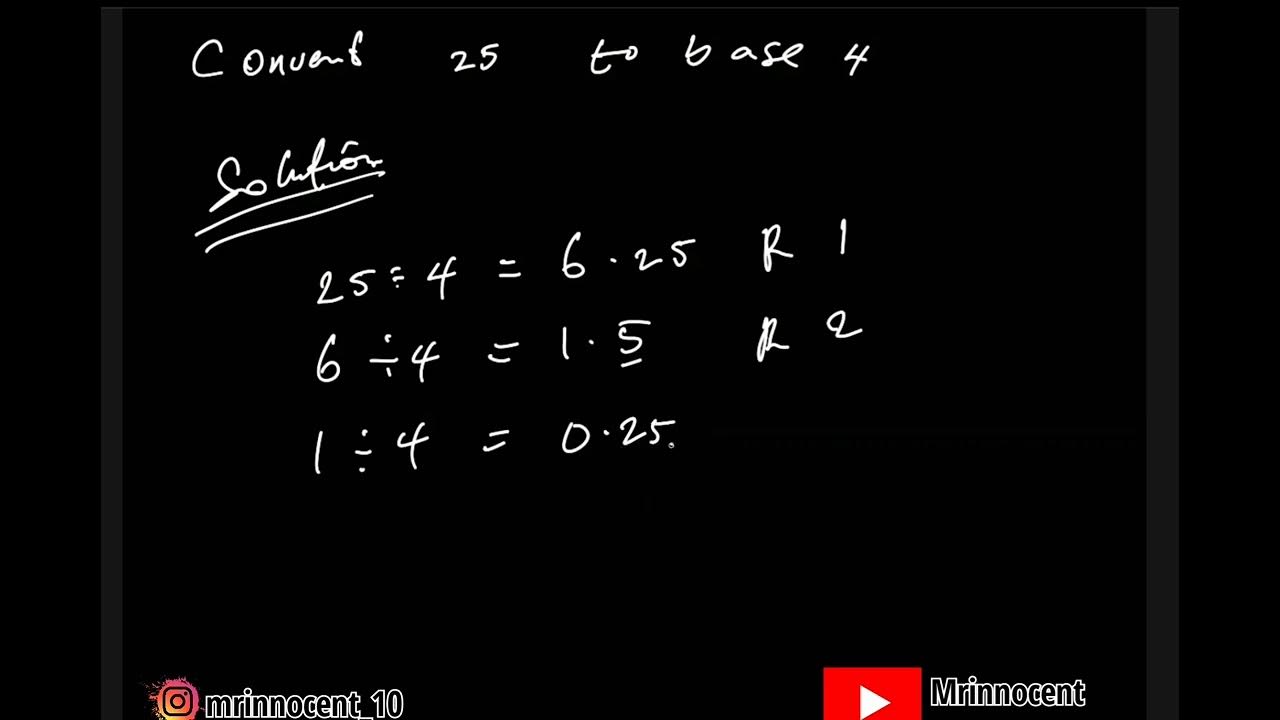 Convert 25 to base 4
Solution
25 ÷ 4 = 6.25 R 1
6 ÷ 4 = 1.5 R 2
1 ÷ 4 = 0.25.
mrinnocent_10
Mrinnocent